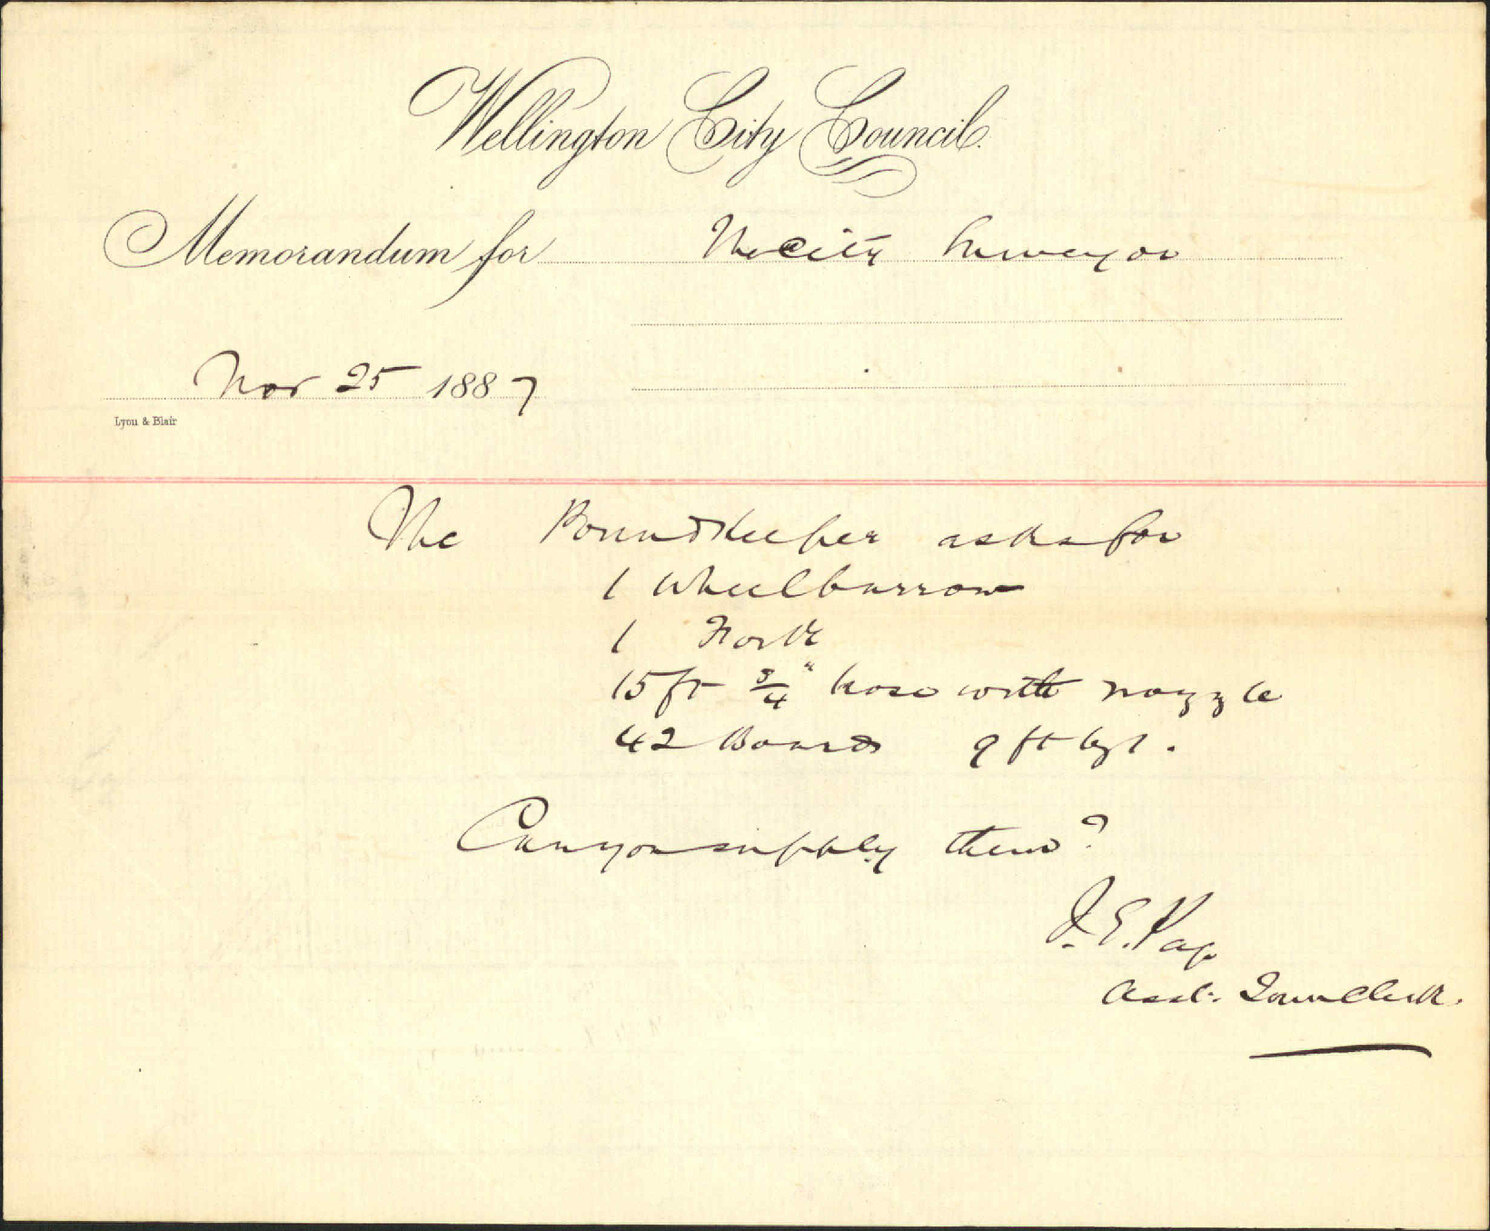 Wellington City Council.
Memorandum for The City Surveyor
Nov 25 1887
Lyon & Blair
The Poundkeeper asks for
1 Wheelbarrow
1 Fork
15 ft 3/4" hose with nozzle
42 Boards 9 ft lgt.
Can you supply them?
J. E. Page
Asst. Town Clerk.